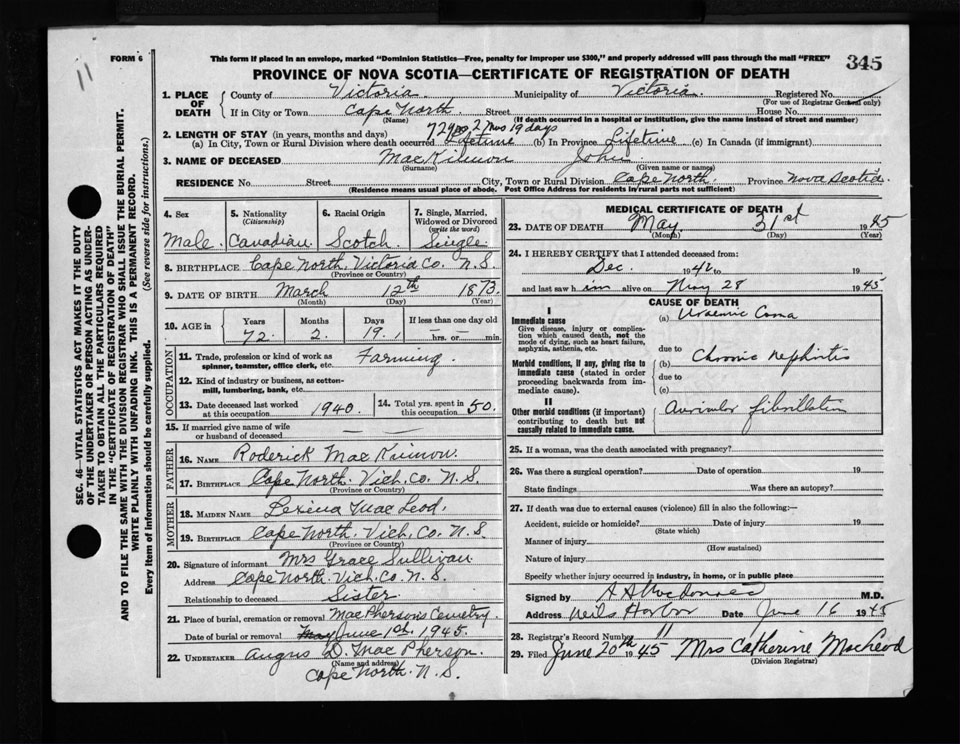 11
FORM 6
This form if placed in an envelope, marked "Dominion Statistics—Free, penalty for improper use $300," and properly addressed will pass through the mail "FREE"
345
PROVINCE OF NOVA SCOTIA—CERTIFICATE OF REGISTRATION OF DEATH
1. PLACE OF DEATH
County of Victoria. Municipality of Victoria. Registered No.
(For use of Registrar General only)
If in City or Town Cape North. Street House No.
(Name) (If death occurred in a hospital or institution, give the name instead of street and number)
72 yrs 2 Mos 19 days
2. LENGTH OF STAY (in years, months and days)
(a) In City, Town or Rural Division where death occurred Lifetime (b) In Province Lifetime (c) In Canada (if immigrant)
3. NAME OF DECEASED MacKinnon John
(Surname) (Given name or names)
RESIDENCE No. Street City, Town or Rural Division Cape North. Province Nova Scotia.
(Residence means usual place of abode. Post Office Address for residents in rural parts not sufficient)
SEC. 46—VITAL STATISTICS ACT MAKES IT THE DUTY
OF THE UNDERTAKER OR PERSON ACTING AS UNDER-
TAKER TO OBTAIN ALL THE PARTICULARS REQUIRED
IN THE "CERTIFICATE OF REGISTRATION OF DEATH"
AND TO FILE THE SAME WITH THE DIVISION REGISTRAR WHO SHALL ISSUE THE BURIAL PERMIT.
WRITE PLAINLY WITH UNFADING INK. THIS IS A PERMANENT RECORD.
Every item of information should be carefully supplied. (See reverse side for instructions.)
4. Sex
Male.
5. Nationality
(Citizenship)
Canadian
6. Racial Origin
Scotch.
7. Single, Married, Widowed or Divorced
(write the word)
Single
8. BIRTHPLACE Cape North, Victoria Co. N.S.
(Province or Country)
9. DATE OF BIRTH March 12th 1873.
(Month) (Day) (Year)
10. AGE in Years Months Days If less than one day old
72. 2. 19. hrs. or min.
OCCUPATION
11. Trade, profession or kind of work as Farming.
spinner, teamster, office clerk, etc.
12. Kind of industry or business, as cotton-
mill, lumbering, bank, etc.
13. Date deceased last worked
at this occupation 1940.
14. Total yrs. spent in
this occupation 50.
15. If married give name of wife
or husband of deceased — —
FATHER
16. NAME Roderick MacKinnon.
17. BIRTHPLACE Cape North. Vict. Co. N.S.
(Province or Country)
MOTHER
18. MAIDEN NAME MacLeod.
19. BIRTHPLACE Cape North. Vict. Co. N.S.
(Province or Country)
20. Signature of informant Mrs Grace Sullivan
Address Cape North. Vict. Co. N.S.
Relationship to deceased Sister
21. Place of burial, cremation or removal MacPherson's Cemetry.
Date of burial or removal May June 1st. 1945.
22. UNDERTAKER Angus D. MacPherson.
(Name and address)
Cape North. N.S.
MEDICAL CERTIFICATE OF DEATH
23. DATE OF DEATH May 31st 1945
(Month) (Day) (Year)
24. I HEREBY CERTIFY that I attended deceased from:
Dec. 1942 to 19
and last saw him alive on May 28 1945
CAUSE OF DEATH
I
Immediate cause
Give disease, injury or complica-
tion which caused death, not the
mode of dying, such as heart failure,
asphyxia, asthenia, etc.
(a) Uraemic Coma
due to
Morbid conditions, if any, giving rise to
immediate cause (stated in order
proceeding backwards from im-
mediate cause).
(b) Chronic nephritis
due to
(c)
II
Other morbid conditions (if important)
contributing to death but not
causally related to immediate cause.
Auricular fibrillation
25. If a woman, was the death associated with pregnancy?
26. Was there a surgical operation? Date of operation 19
State findings Was there an autopsy?
27. If death was due to external causes (violence) fill in also the following:—
Accident, suicide or homicide? Date of injury 19
(State which)
Manner of injury
(How sustained)
Nature of injury
Specify whether injury occurred in industry, in home, or in public place
Signed by A A MacDonald M.D.
Address Neils Harbor Date June 16 1945
28. Registrar's Record Number 11
29. Filed June 20th 1945 Mrs Catherine MacLeod
(Division Registrar)